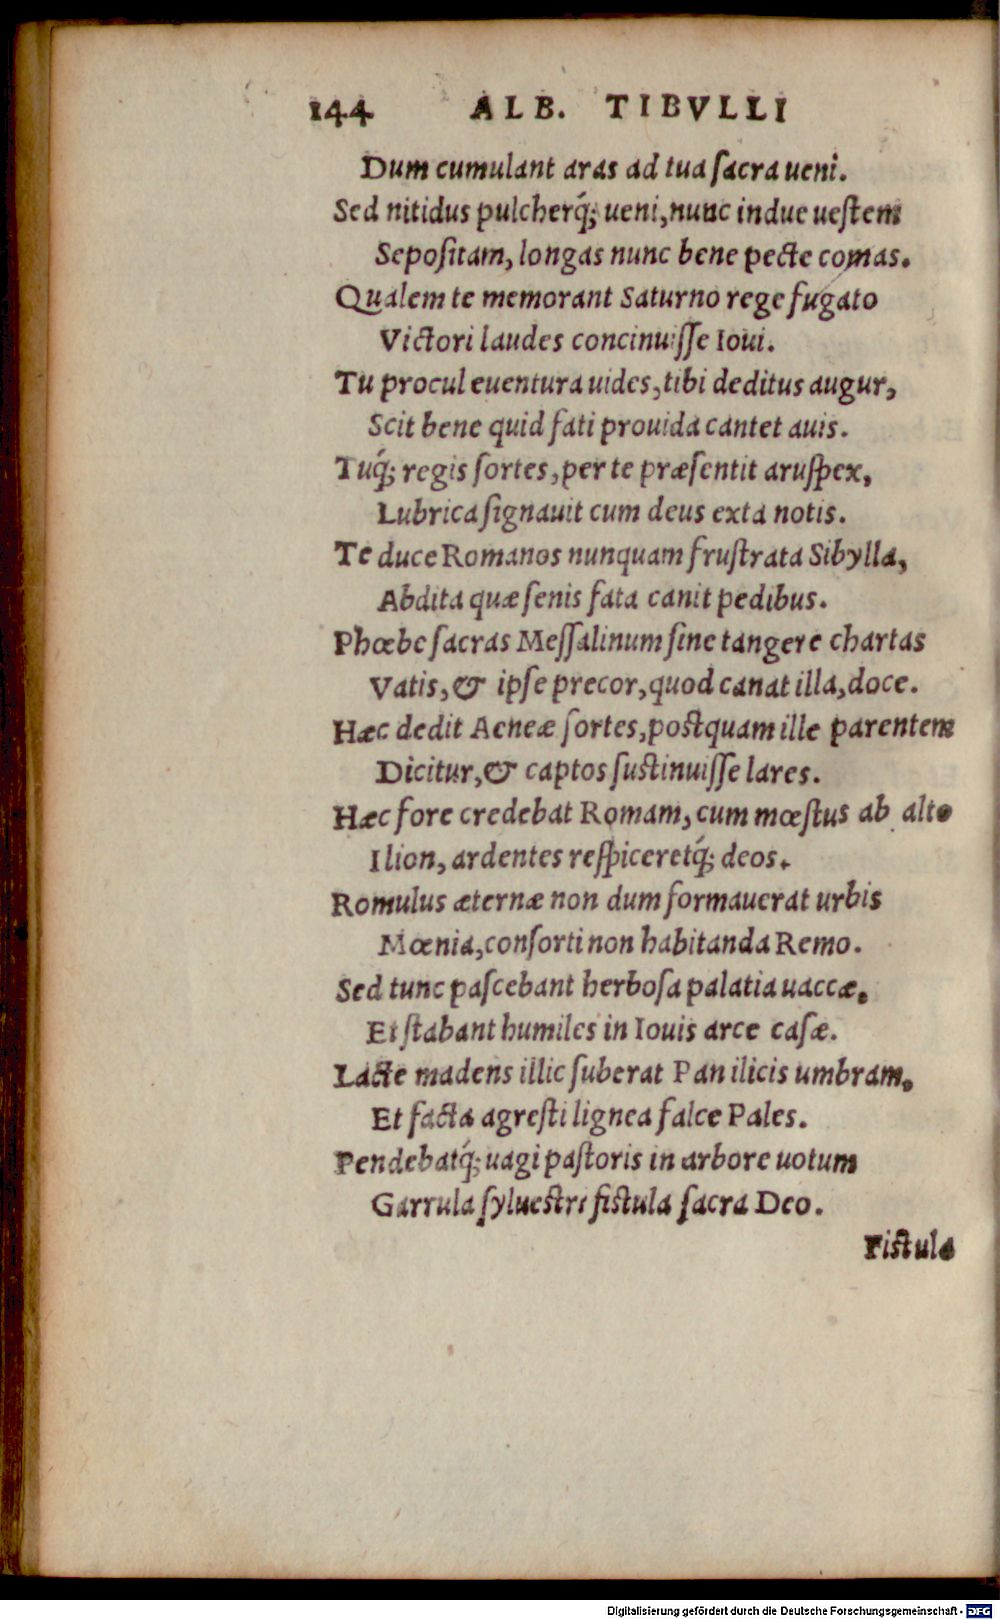 144 ALB. TIBVLLI
Dum cumulant aras ad tua ſacra ueni.
Sed nitidus pulcherq́; ueni, nunc indue ueſtem
Sepoſitam, longas nunc bene pecte comas.
Qualem te memorant Saturno rege fugato
Victori laudes concinuiſſe Ioui.
Tu procul euentura uides, tibi deditus augur,
Scit bene quid fati prouida cantet auis.
Tuq́; regis ſortes, per te præſentit aruſpex,
Lubrica ſignauit cum deus exta notis.
Te duce Romanos nunquam fruſtrata Sibylla,
Abdita quæ ſenis fata canit pedibus.
Phœbe ſacras Meſſalinum ſine tangere chartas
Vatis, & ipſe precor, quod canat illa, doce.
Hæc dedit Aeneæ ſortes, poſtquam ille parentem
Dicitur, & captos ſuſtinuiſſe lares.
Hæc fore credebat Romam, cum mœſtus ab alto
Ilion, ardentes reſpiceretq́; deos.
Romulus æternæ non dum formauerat urbis
Mœnia, conſorti non habitanda Remo.
Sed tunc paſcebant herboſa palatia uaccæ.
Et ſtabant humiles in Iouis arce caſæ.
Lacte madens illic ſuberat Pan ilicis umbram.
Et facta agreſti lignea falce Pales.
Pendebatq́; uagi paſtoris in arbore uotum
Garrula ſylueſtri fiſtula ſacra Deo.
Fiſtula
Digitalisierung gefördert durch die Deutsche Forschungsgemeinschaft - DFG